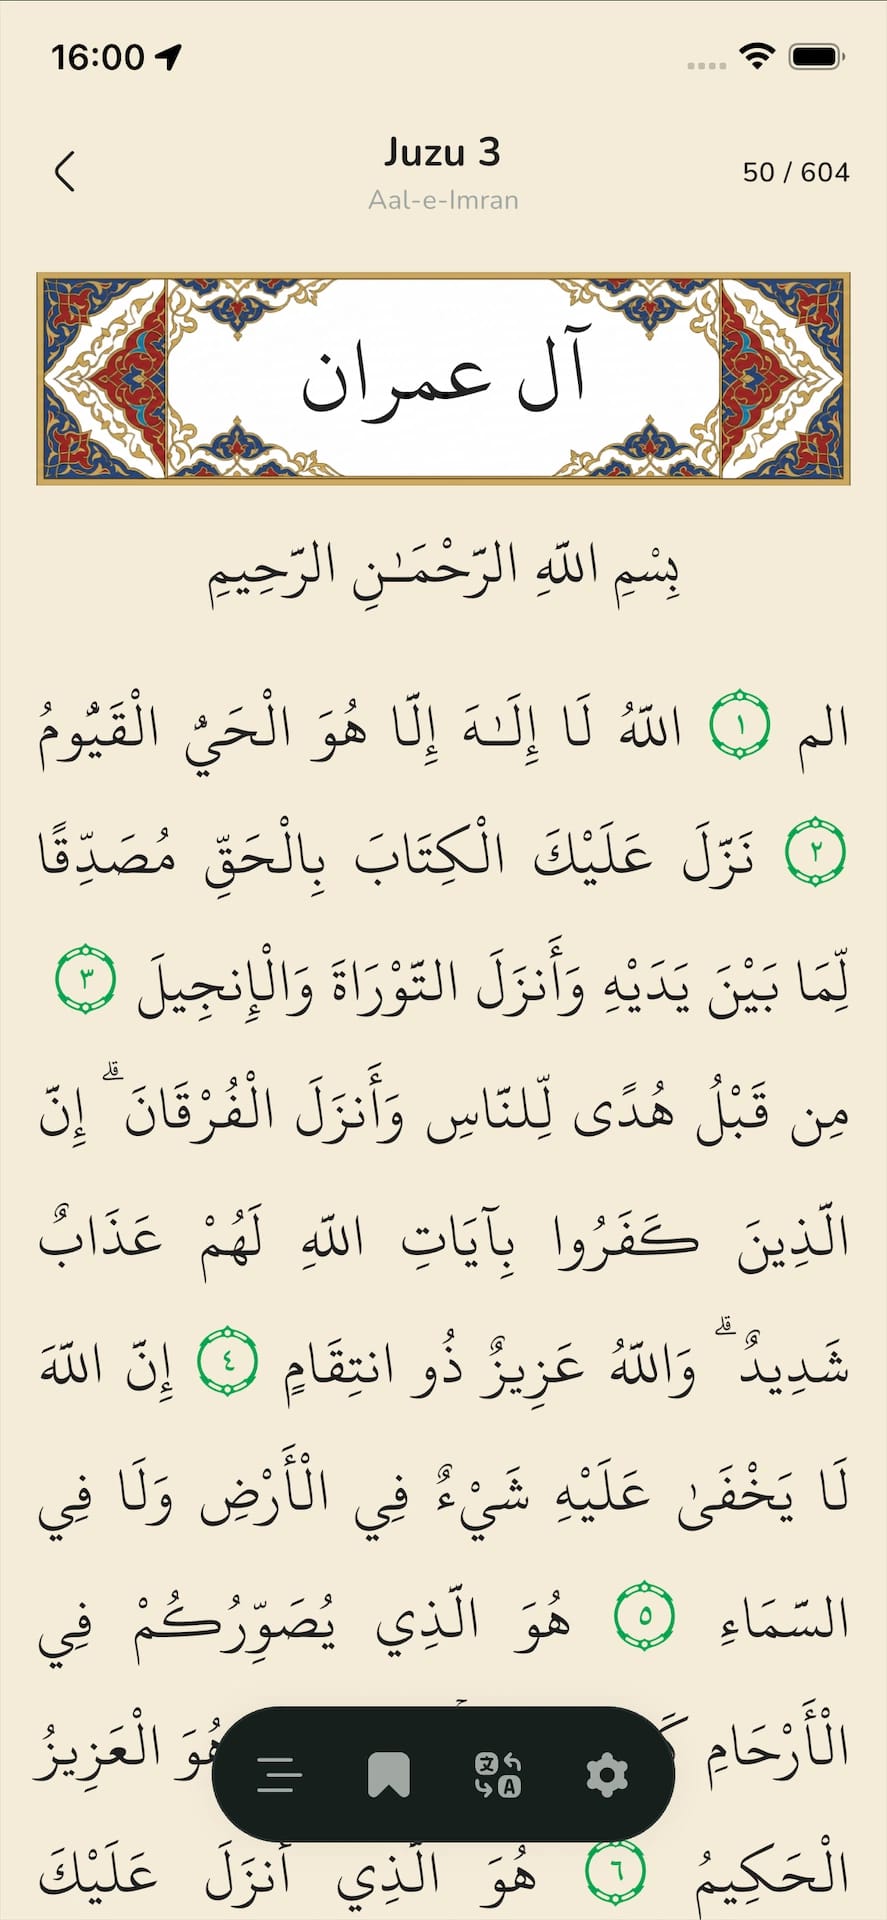 16:00
Juzu 3
Aal-e-Imran
50 / 604
آل عمران
بِسْمِ اللَّهِ الرَّحْمَـٰنِ الرَّحِيمِ
الم ١ اللَّهُ لَا إِلَـٰهَ إِلَّا هُوَ الْحَيُّ الْقَيُّومُ
٢ نَزَّلَ عَلَيْكَ الْكِتَابَ بِالْحَقِّ مُصَدِّقًا
لِّمَا بَيْنَ يَدَيْهِ وَأَنزَلَ التَّوْرَاةَ وَالْإِنجِيلَ ٣
مِن قَبْلُ هُدًى لِّلنَّاسِ وَأَنزَلَ الْفُرْقَانَ ۗ إِنَّ
الَّذِينَ كَفَرُوا بِآيَاتِ اللَّهِ لَهُمْ عَذَابٌ
شَدِيدٌ ۗ وَاللَّهُ عَزِيزٌ ذُو انتِقَامٍ ٤ إِنَّ اللَّهَ
لَا يَخْفَىٰ عَلَيْهِ شَيْءٌ فِي الْأَرْضِ وَلَا فِي
السَّمَاءِ ٥ هُوَ الَّذِي يُصَوِّرُكُمْ فِي
الْأَرْحَامِ هُوَ الْعَزِيزُ
الْحَكِيمُ ٦ هُوَ الَّذِي أَنزَلَ عَلَيْكَ